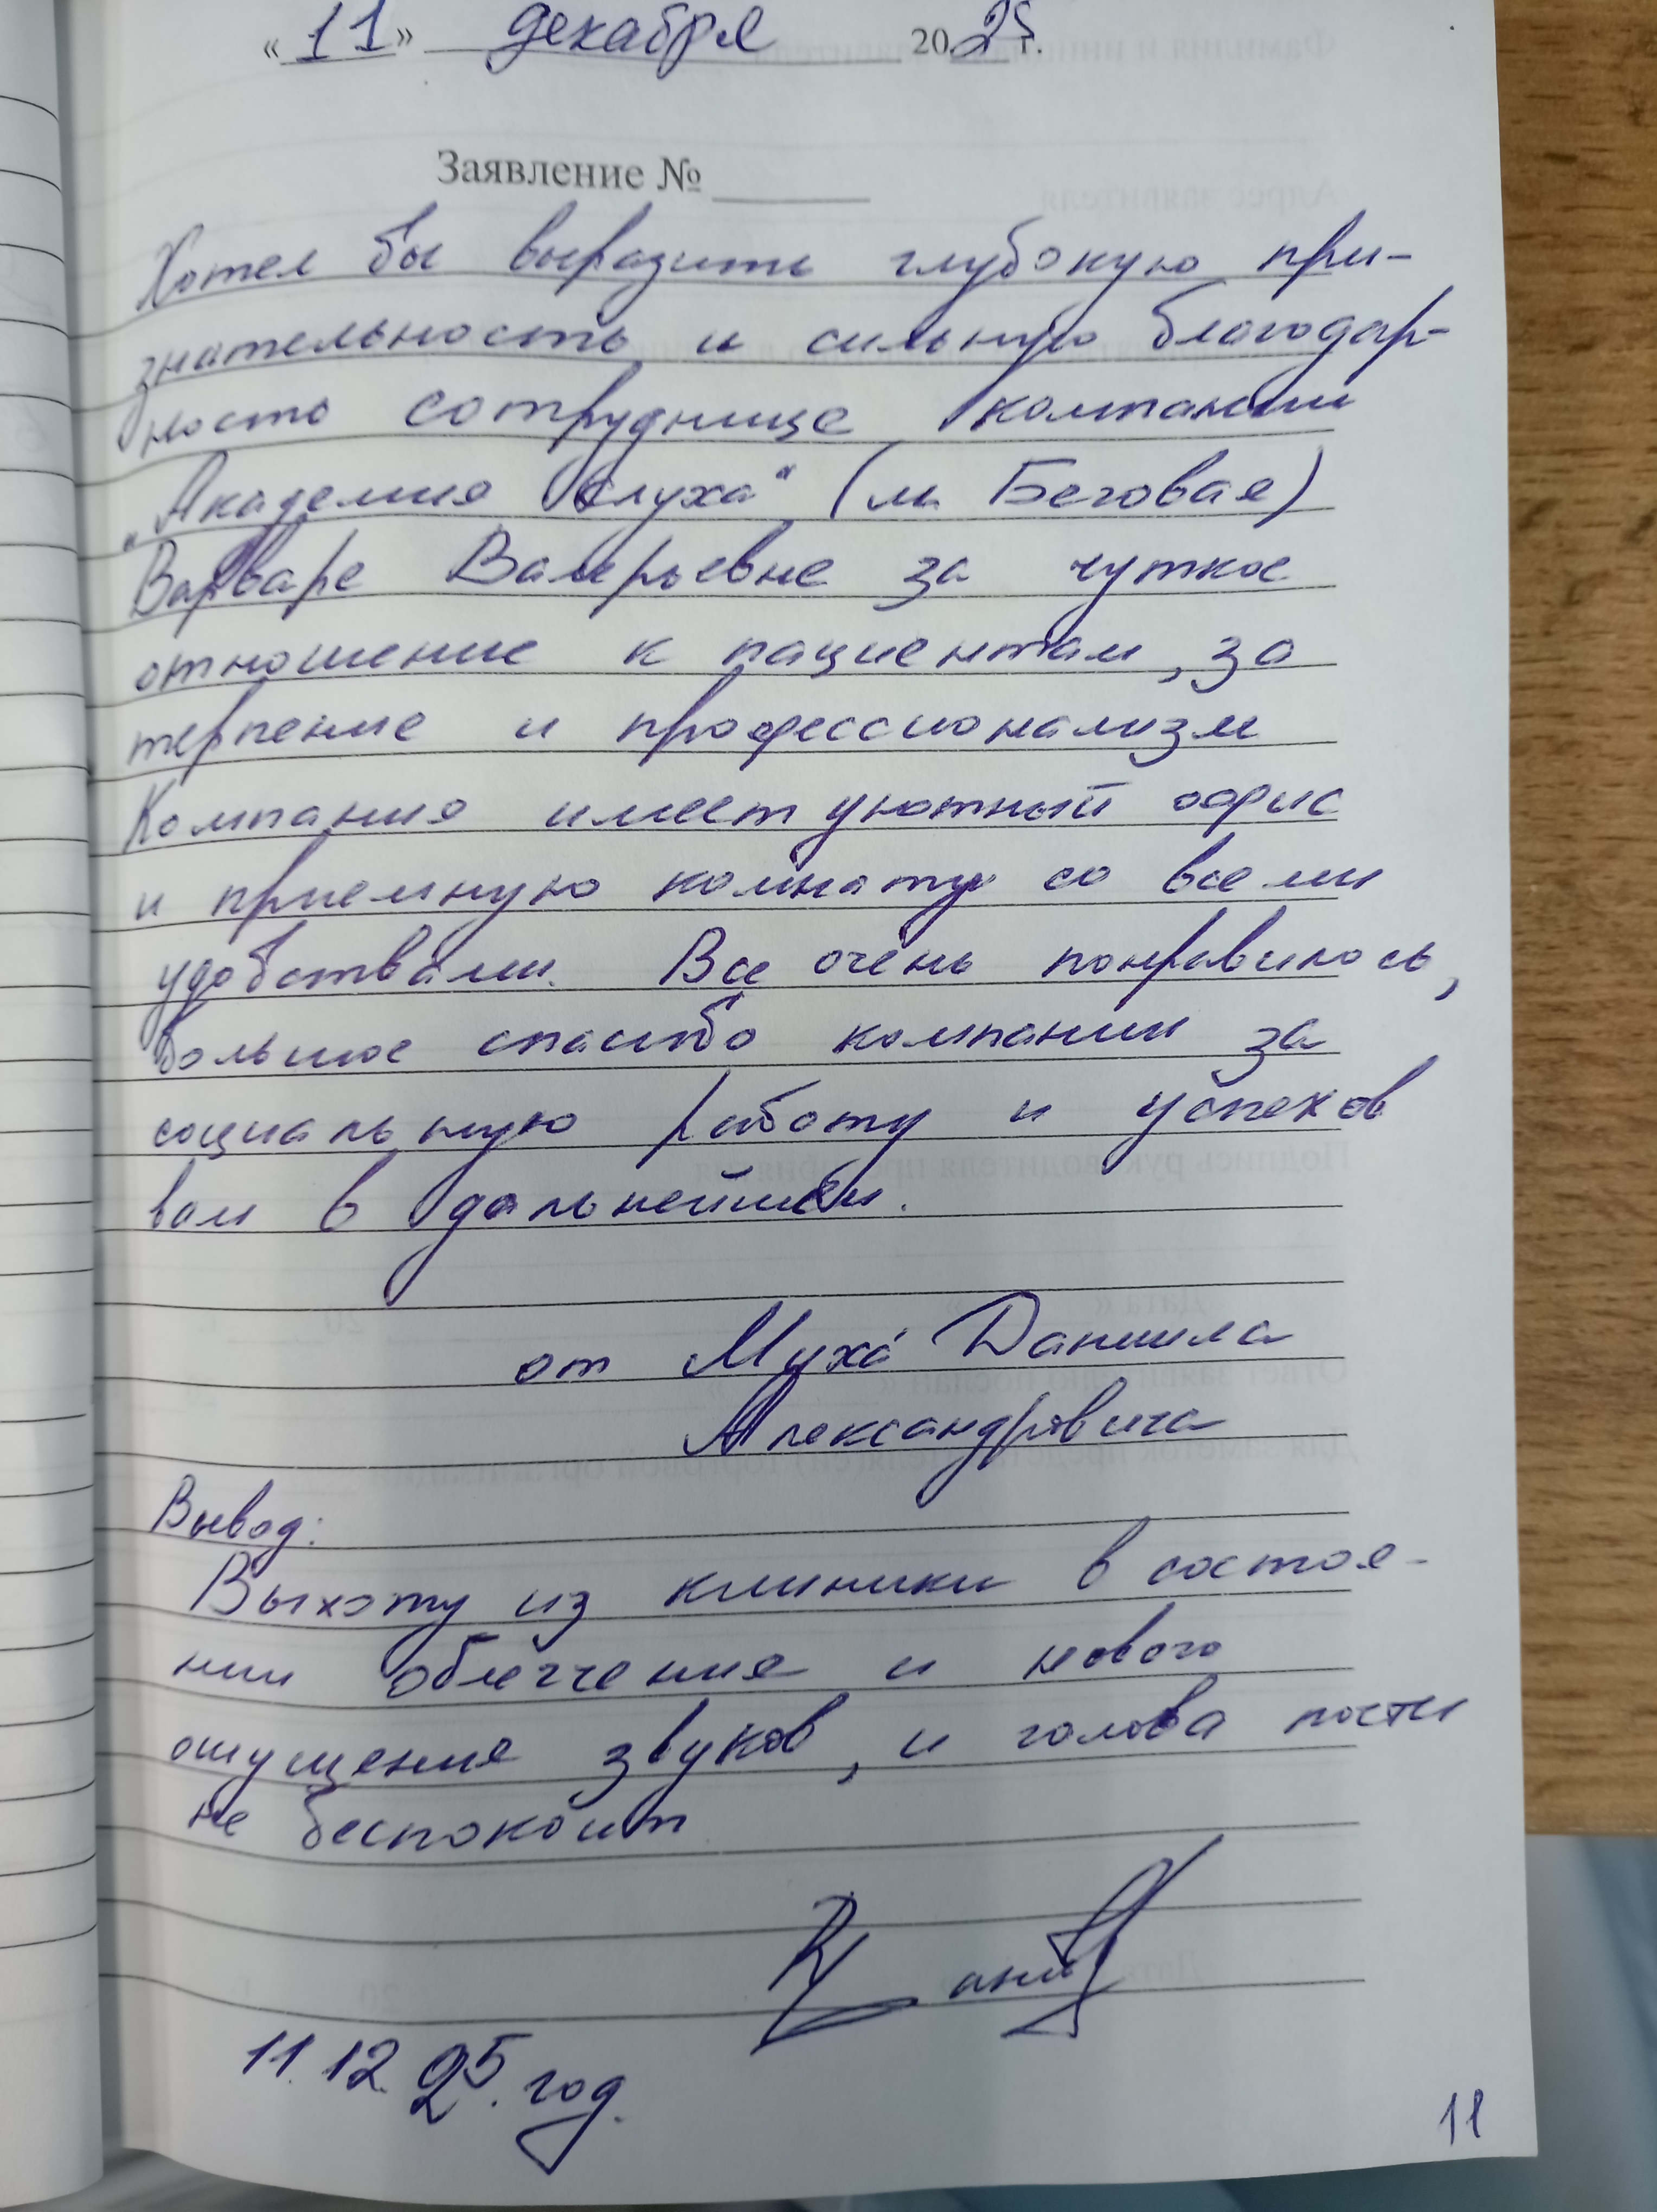 «11» декабря 2025 г.
Заявление № ______
Хотел бы выразить глубокую при-
знательность и сильную благодар-
ность сотруднице компании
„Академия Слуха“ (м. Беговая)
Варваре Валерьевне за чуткое
отношение к пациентам, за
терпение и профессионализм
Компания имеет уютный офис
и приемную комнату со всеми
удобствами. Все очень понравилось,
большое спасибо компании за
социальную работу и успехов
вам в дальнейшем.
от Муха́ Даниила
Александровича
Вывод:
Выхожу из клиники в состоя-
нии облегчения и нового
ощущения звуков, и голова почти
не беспокоит
11.12.25.год.
11